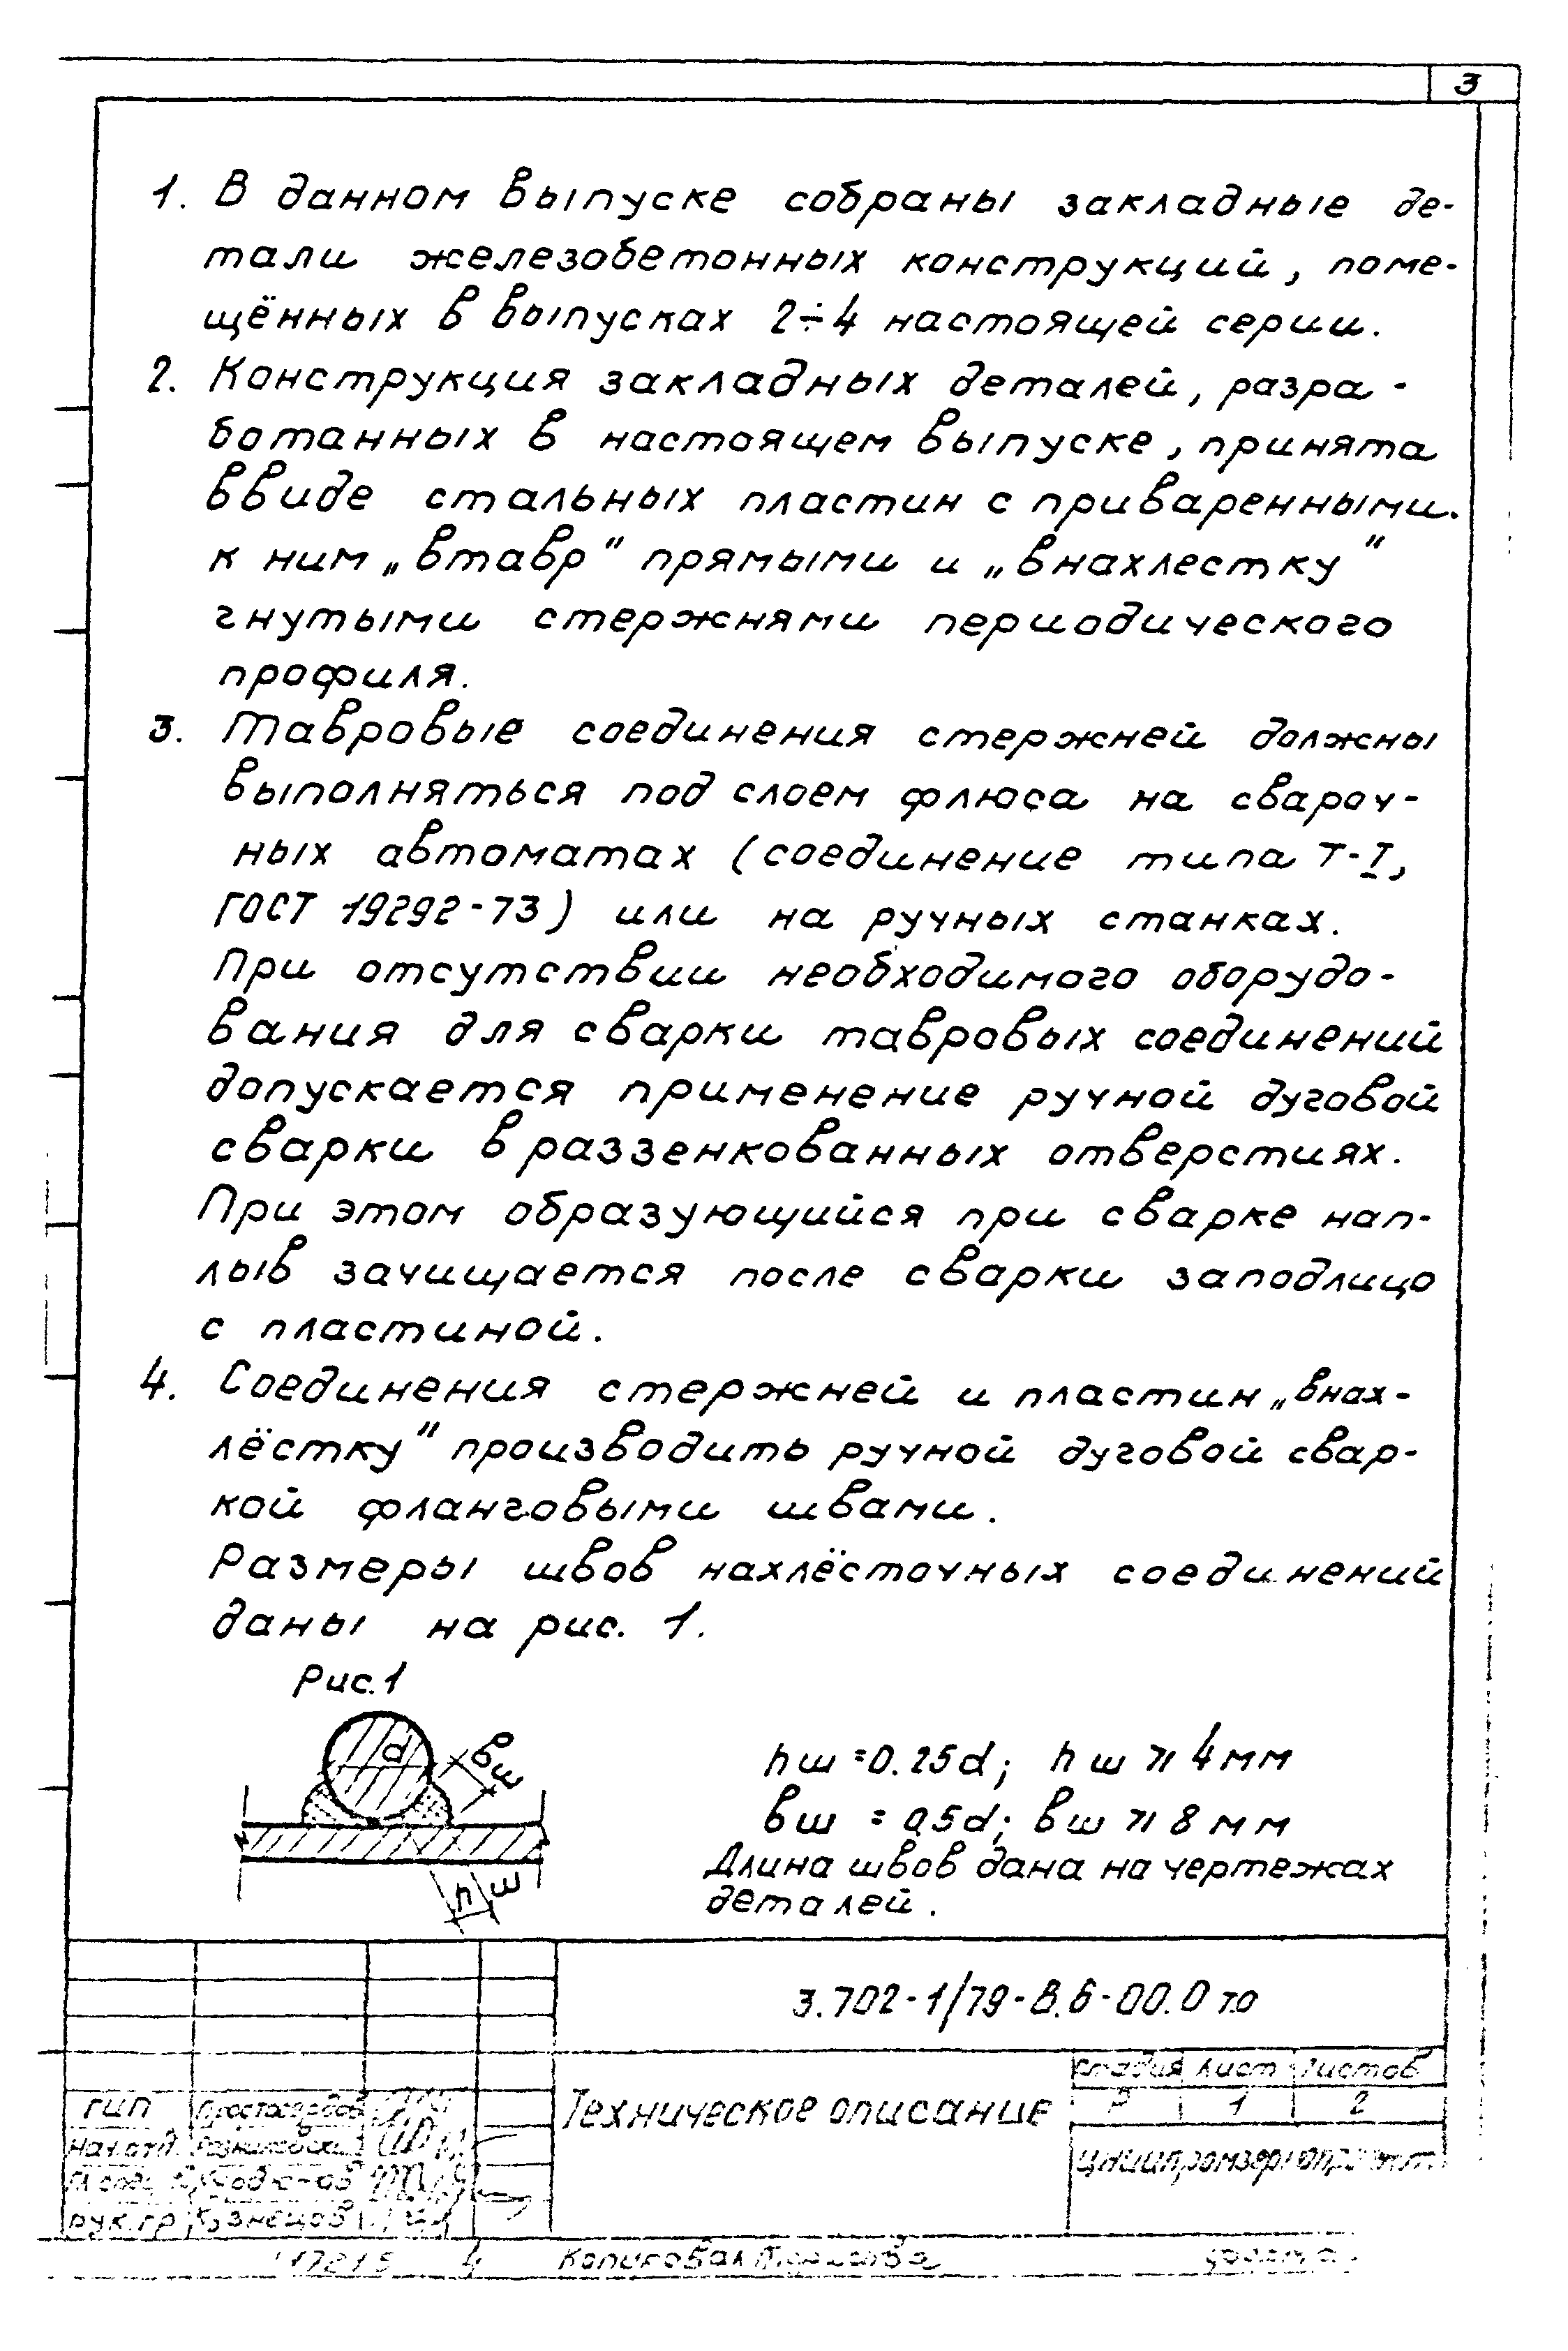 3
1. В данном выпуске собраны закладные де-
тали железобетонных конструкций, поме-
щённых в выпусках 2÷4 настоящей серии.
2. Конструкция закладных деталей, разра-
ботанных в настоящем выпуске, принята
ввиде стальных пластин с приваренными.
к ним „втавр" прямыми и „внахлестку"
гнутыми стержнями периодического
профиля.
3. Тавровые соединения стержней должны
выполняться под слоем флюса на свароч-
ных автоматах (соединение типа Т-I,
ГОСТ 19292-73) или на ручных станках.
При отсутствии необходимого оборудо-
вания для сварки тавровых соединений
допускается применение ручной дуговой
сварки в раззенкованных отверстиях.
При этом образующийся при сварке нап-
лыв зачищается после сварки заподлицо
с пластиной.
4. Соединения стержней и пластин „внах-
лёстку" производить ручной дуговой свар-
кой фланговыми швами.
Размеры швов нахлёсточных соединений
даны на рис. 1.
Рис.1
d
вш
hш
hш =0.25d; hш ⩾ 4мм
вш = 0,5d; вш ⩾ 8 мм
Длина швов дана на чертежах
деталей.
3.702-1/79-В.6-00.0 т.о
Техническое описание
Стадия Лист Листов
Р 1 2
ГИП
Нач.отд.
Рук.гр. Кузнецов
17215 4 Копировал